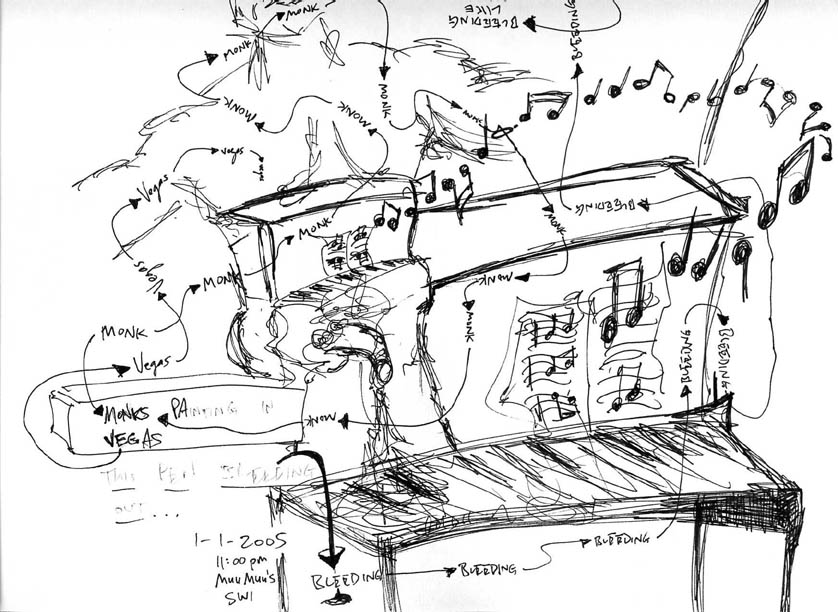 MONK
BLEEDING
LIKE
BLEEDING
MONK
MONK
MONK
MONK
MONK
Vegas
vegas
Vegas
BLEEDING
MONK
MONK
MONK
MONK
MONK
MONK
Vegas
BLEEDING
BLEEDING
MONKS PAINTING IN
VEGAS
MONK
THIS PEN BLEEDING
OUT...
1-1-2005
11:00 pm
MUU MUU'S
SW1
BLEEDING
BLEEDING
BLEEDING